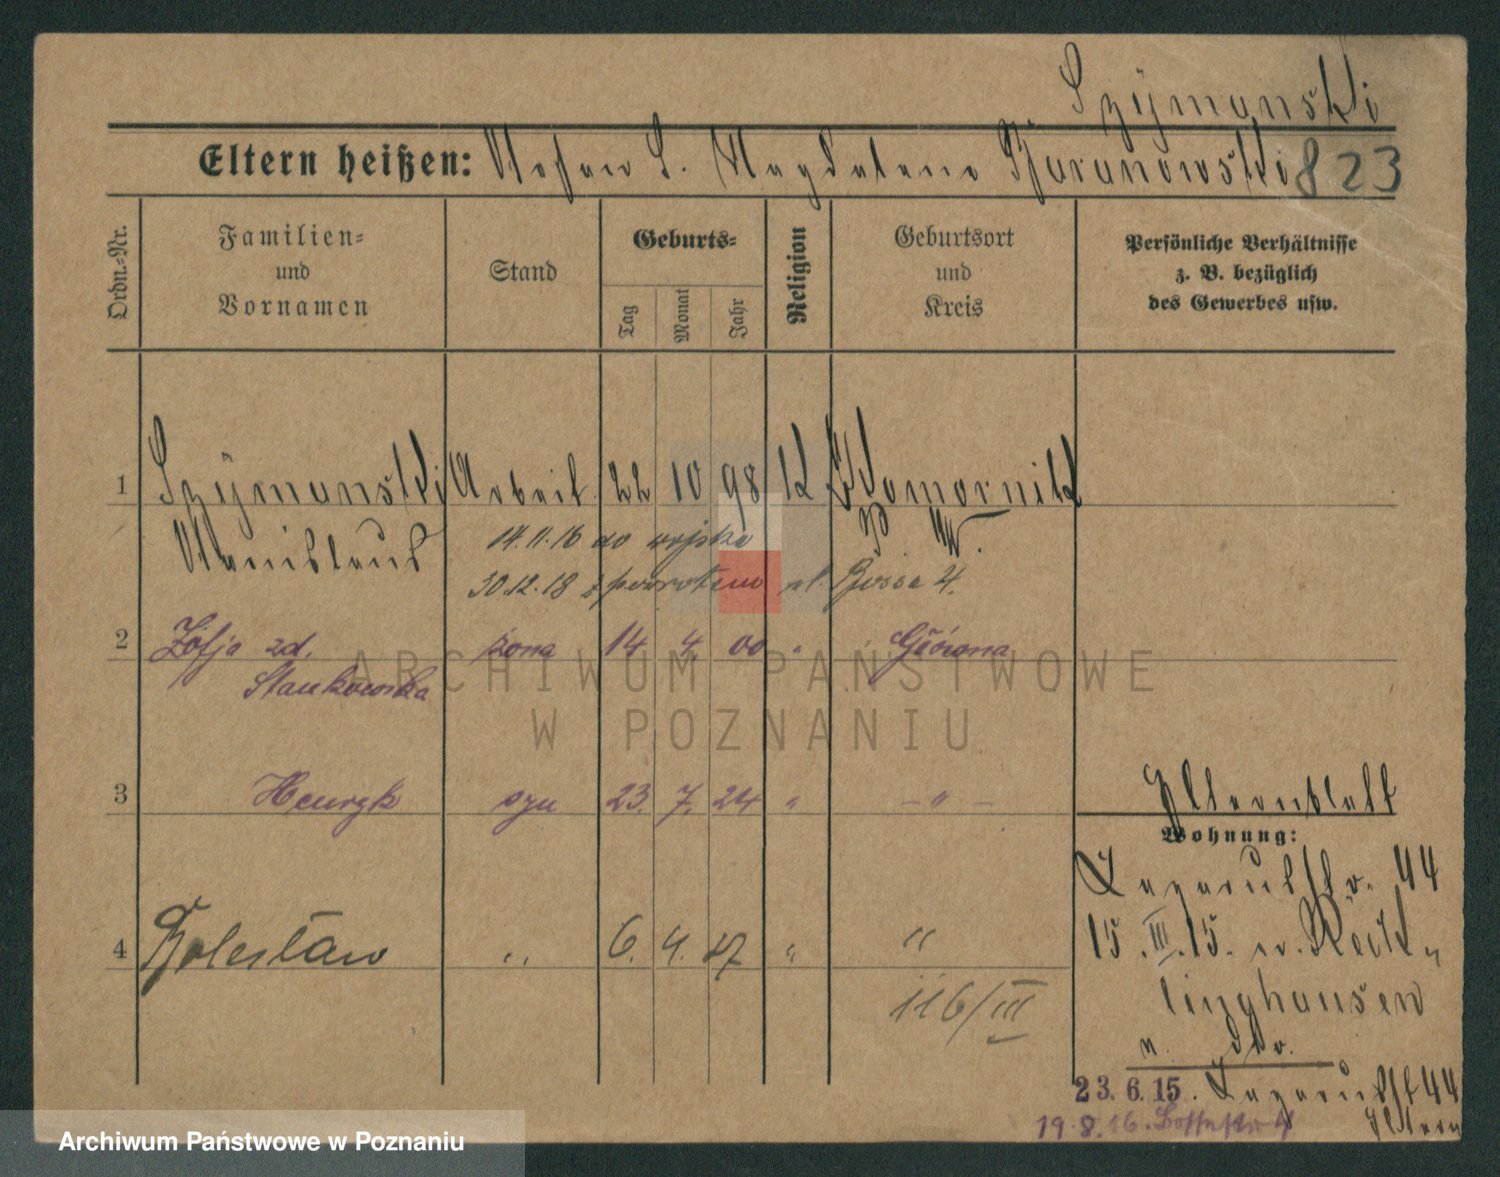 Szÿmanski
Eltern heißen: Magdalena Baranowski 823
Ordn.-Nr.
Familien-
und
Vornamen
Stand
Geburts-
Tag
Monat
Jahr
Religion
Geburtsort
und
Kreis
Persönliche Verhältnisse
z. B. bezüglich
des Gewerbes usw.
1 Szÿmanski Arbeit. 22 10 98 K Komornik
Stanislaus P. W.
14.11.16 do wojska
30.12.18 z powrotem ul. Bosse 4.
2 Zofja zd. żona 14 4. 00 " Główna
Stankowska
3 Henryk syn 23. 7. 24 " - " -
4 Bolesław " 6. 4. 27 " "
116/III
Elternblatt
Wohnung:
Lazarusstr. 44
15.III.15. n. Reck-
linghausen
n. do.
23.6.15. Lazarusst 44
Eltern
19.8.16. Bossestr 4
ARCHIWUM PAŃSTWOWE
W POZNANIU
Archiwum Państwowe w Poznaniu